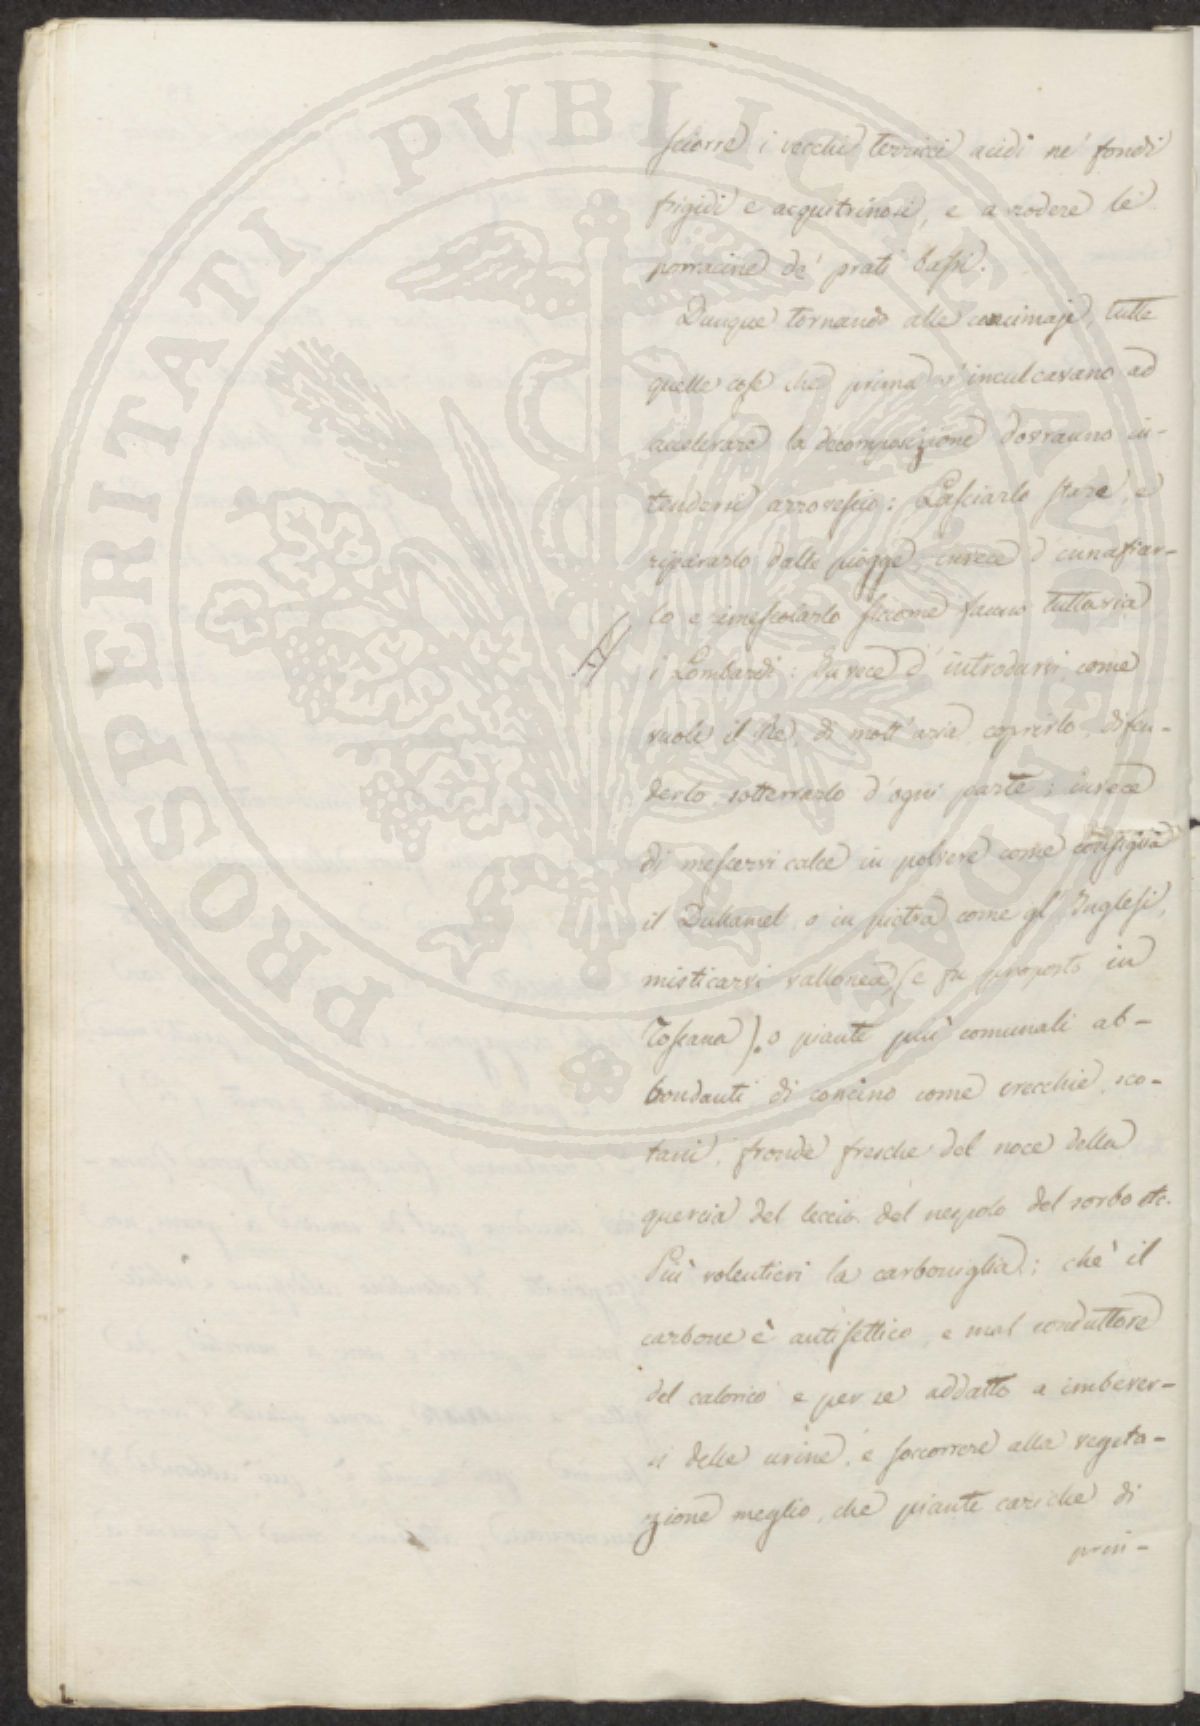 sciorre i vecchi terricci acidi ne' fondi
frigidi e acquitrinosi, e a rodere le
porracine de' prati bassi.
Dunque tornando alle concimaje, tutte
quelle cose che prima s'inculcavano ad
accelerare la decomposizione dovranno in-
tendersi arrovescio: Lasciarlo stare, e
ripararlo dalle piogge, invece d'annaffiar-
lo e rimescolarlo siccome fanno tuttavia
i Lombardi: Invece d'introdurvi, come
vuole il Re, di molt'aria, coprirlo, difen-
derlo, sotterrarlo d'ogni parte; invece
di mescervi calce in polvere come consiglia
il Duhamel, o in pietra come gl'Inglesi,
misticarvi vallonea, (e fu proposto in
Toscana), o piante più comunali ab-
bondanti di concino come crecchie, sco-
tani, fronde fresche del noce della
quercia del leccio del nespolo del sorbo etc.
Più volentieri la carboniglia; chè il
carbone è antisettico, e mal conduttore
del calorico e per se addatto a imbever-
si delle urine, e soccorrere alla vegeta-
zione meglio, che piante cariche di
prin-
PROSPERITATI PUBLICAE AUGENDAE